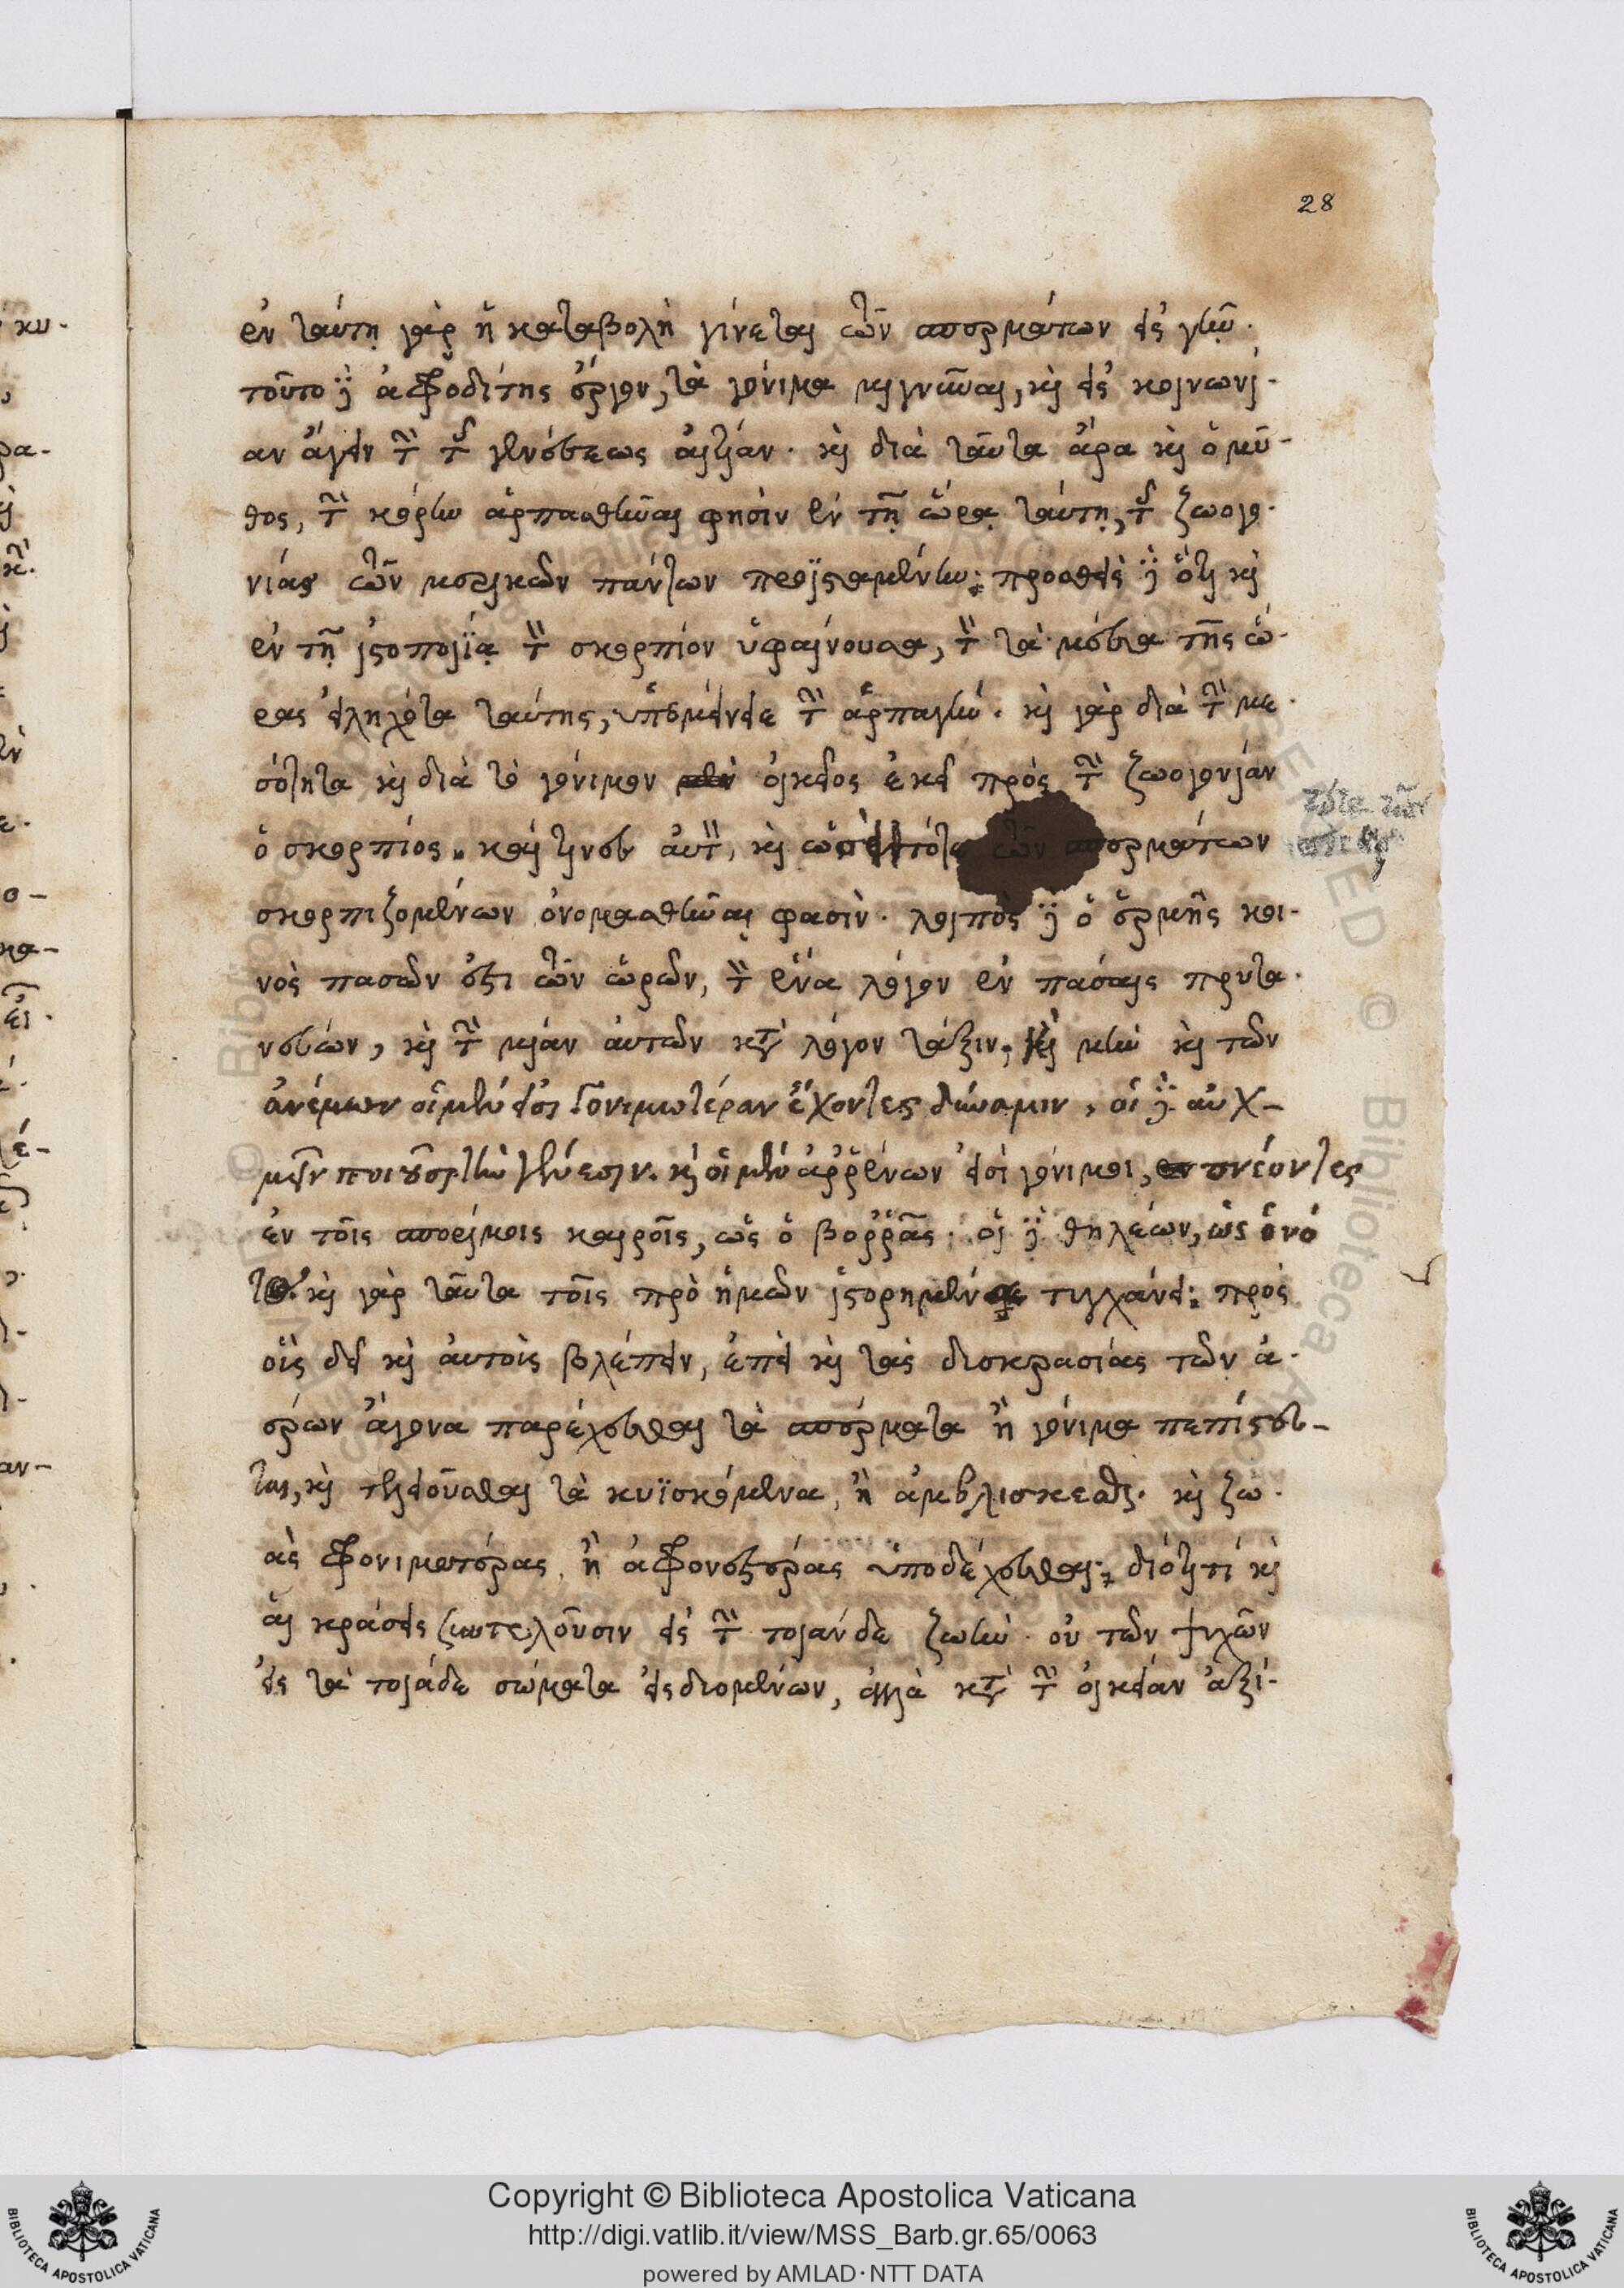 28
ἐν ταύτῃ γὰρ ἡ καταβολὴ γίνεται τῶν σπερμάτων εἰς γῆν.
τοῦτο δὲ ἀφροδίτης ἔργον, τὰ γόνιμα μιγνῦναι, καὶ εἰς κοινωνί-
αν ἄγειν τὴν τῆς γενέσεως αἰτίαν. καὶ διὰ ταῦτα ἄρα καὶ ὁ μῦ-
θος, τὴν κόρην ἁρπασθῆναι φησὶν ἐν τῇ ὥρᾳ ταύτῃ, τῆς ζωογο-
νίας τῶν μερικῶν πάντων προϊσταμένην; προσθεὶς δὲ ὅτι καὶ
ἐν τῇ ἱστοποιΐᾳ τὸν σκορπίον ὑφαίνουσα, τὸν τὰ μέσα τῆς ὥ-
ρας εἰληχότα ταύτης, ὑπέμεινε τὴν ἁρπαγήν. καὶ γὰρ διὰ τὴν με-
σότητα καὶ διὰ τὸ γόνιμον οἰκεῖος ἐκεῖ πρὸς τὴν ζωογονίαν
ὁ σκορπίος. καί τινες αὐτὸν, καὶ σπερμάτων
σκορπιζομένων ὀνομασθῆναι φασὶν. λοιπὸς δὲ ὁ ἑρμῆς κοι-
νὸς πασῶν ἐστι τῶν ὡρῶν, τὸν ἕνα λόγον ἐν πάσαις πρυτα-
νεύων, καὶ τὴν μίαν αὐτῶν κατὰ λόγον τάξιν, καὶ μὴν καὶ τῶν
ἀνέμων οἱ μὲν εἰσι γονιμωτέραν ἔχοντες δύναμιν, οἱ δὲ αὐχ-
μεῖν ποιοῦσι τὴν γένεσιν. καὶ οἱ μὲν ἀῤῥένων εἰσὶ γόνιμοι, πνέοντες
ἐν τοῖς σπορίμοις καιροῖς, ὡς ὁ βοῤῥᾶς. οἱ δὲ θηλέων, ὡς ὁ νό
τος. καὶ γὰρ ταῦτα τοῖς πρὸ ἡμῶν ἱστορημένα τυγχάνει; πρὸς
οὓς δεῖ καὶ αὐτοὺς βλέπειν, ἐπεὶ καὶ τὰς δυσκρασίας τῶν ἀ-
έρων ἄγονα παρέχεσθαι τὰ σπέρματα ἢ γόνιμα πεπίστευ-
ται, καὶ τελειοῦσθαι τὰ κυϊσκόμενα, ἢ ἀμβλίσκεσθαι. καὶ ζω-
ὰς φρονιμωτέρας, ἢ ἀφρονεστέρας ὑποδέχεσθαι; διότι τί καὶ
αἱ κράσεις συντελοῦσιν εἰς τὴν τοιάνδε ζωὴν. οὐ τῶν ψυχῶν
εἰς τὰ τοιάδε σώματα εἰσδυομένων, ἀλλὰ κατὰ τὴν οἰκείαν ἀξί-
Copyright © Biblioteca Apostolica Vaticana
http://digi.vatlib.it/view/MSS_Barb.gr.65/0063
powered by AMLAD·NTT DATA
BIBLIOTECA APOSTOLICA VATICANA
BIBLIOTECA APOSTOLICA VATICANA